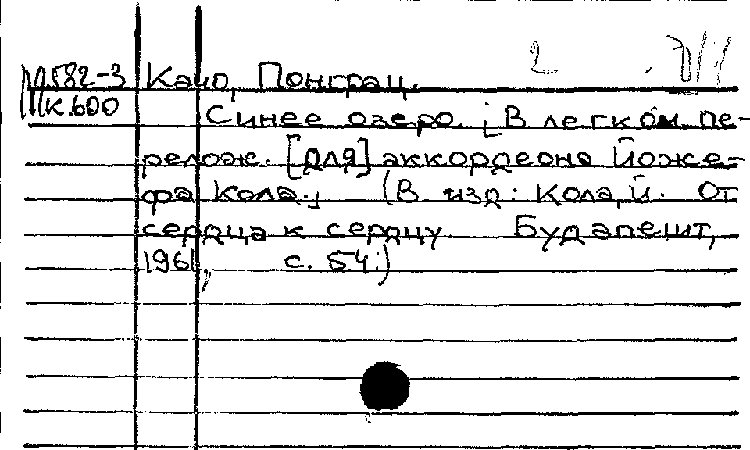 2
М582-3 Качо, Понграц.
К.600 Синее озеро. [В легком пе-
релож. [для] аккордеона Йоже-
фа Кола.] (В изд: Кола, Й. От
сердца к сердцу. Будапешт,
1961, с. 54.)